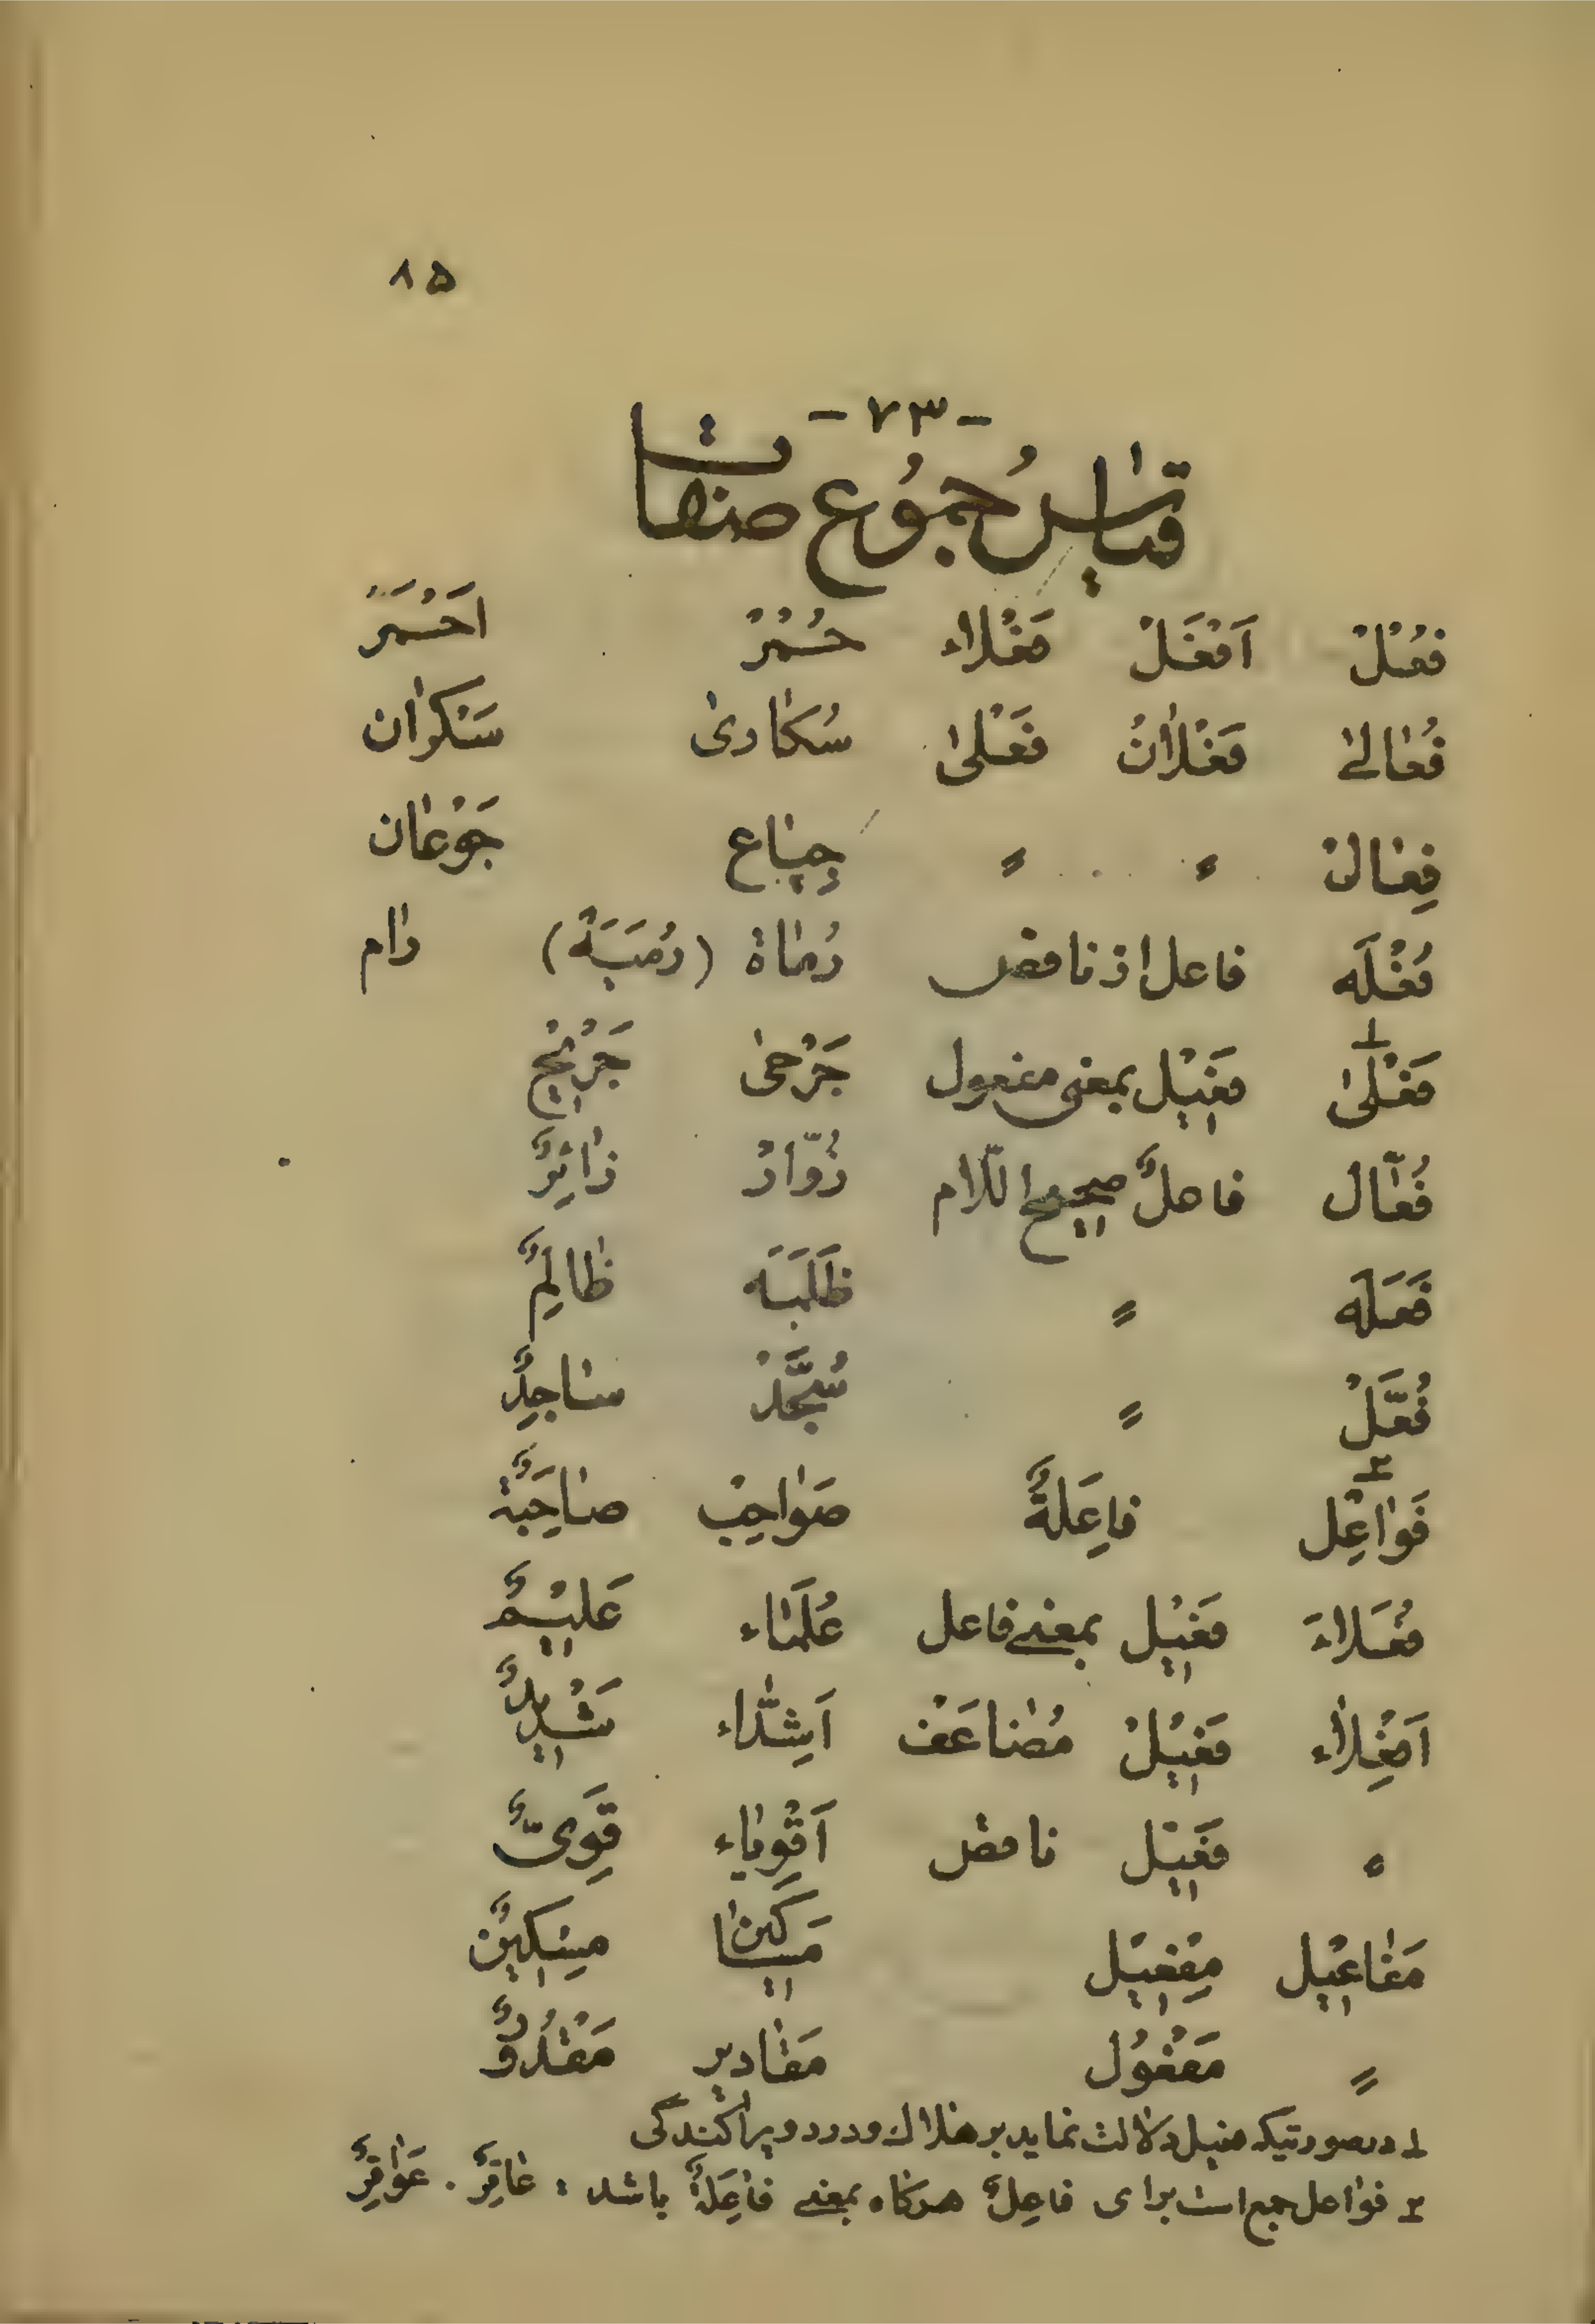 ۸۵
-۷۳-
قیاس جُمُوع صفات
فُعْلٌ اَفْعَلْ فَعْلاء حُمْرٌ اَحْمَرَ
فُعٰالیٰ فَعْلاٰنُ فَعْلیٰ سُکٰاریٰ سَکْرٰان
فِعٰالٌ 〃 〃 جِیٰاع جَوْعٰان
فُعْلَه فاعل از ناقص رُمٰاة (رُمَیَةٌ) رٰام
فَعْلیٰ ۱ فَعیْل بمعنی مفعول جَرْحیٰ جَرْیْح
فُعّٰال فاعلٌ صحیح اللّام زُوّٰارٌ زٰائِرٌ
فَعَلَه 〃 ظَلَمَه ظٰالِمٌ
فُعَّلٌ 〃 سُجَّدٌ سٰاجِدٌ
فَوٰاعِل ۲ فاعِلَةٌ صَوٰاحِبْ صٰاحِبَةٌ
فُعَلاءَ فَعیْل بمعنی فاعل عُلَمٰاء عَلیْمٌ
اَفْعِلاٰء فَعیْلْ مُضٰاعَف اَشِدّٰاء شَدْیدٌ
〃 فَعیْل ناقص اَقْوِیٰاء قَوِیٌّ
مَفٰاعیْل مِفْعیْل مَسٰاکین مِسْکیْنٌ
〃 مَفْعُول مَقٰادیر مَقْدُورٌ
۱ درصورتیکه فعیل دلالت نماید بر هلاك و درد و پراکندگی
۲ فوٰاعل جمع است برای فاعِلٌ هرگاه بمعنی فٰاعِلَةٌ باشد : عٰاقِرٌ . عَوٰاقِرٌ